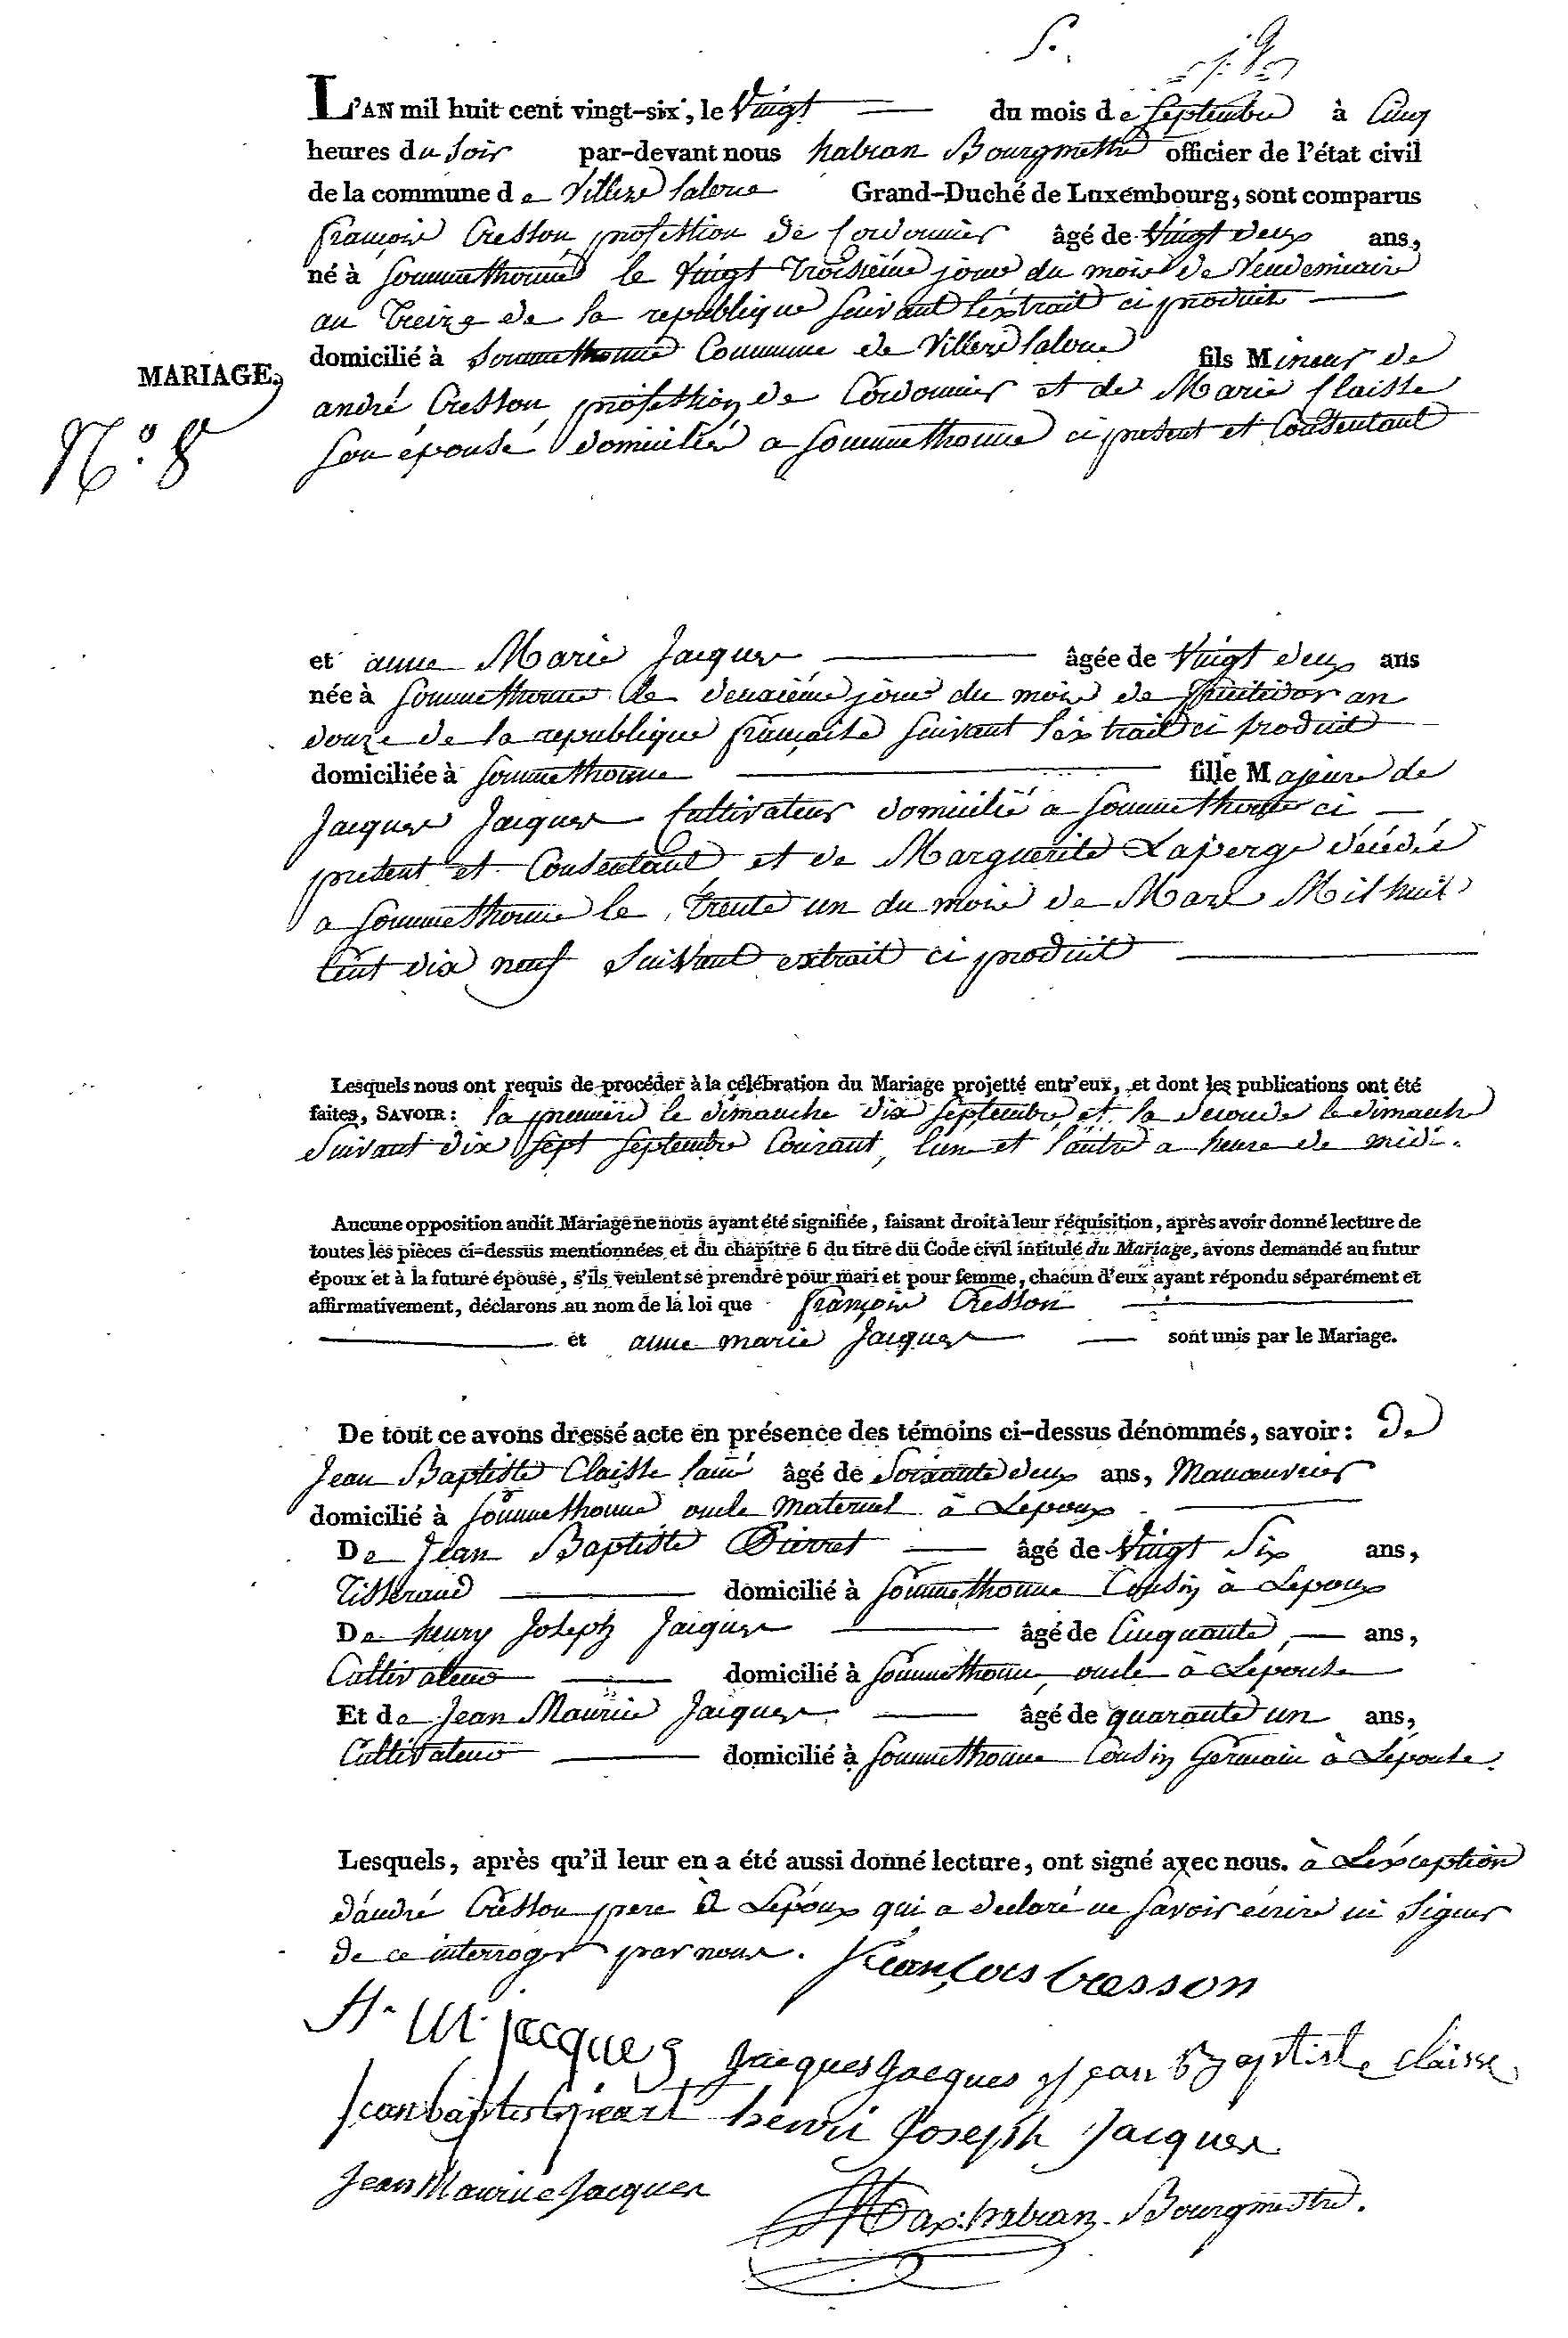 S.
L'AN mil huit cent vingt-six, le Vingt du mois de Septembre à Cinq
heures du Soir par-devant nous habran Bourgmettre officier de l'état civil
de la commune de Villers laloue Grand-Duché de Luxembourg, sont comparus
françois Cresson profession de Cordonnier âgé de Vingt deux ans,
né à Sommethonne le Vingt troisiéme jour du mois de Vendemiaire
an treize de la republique Suivant l'extrait ci produit
domicilié à Sommethonne Commune de Villers laloue fils Mineur de
MARIAGE,
andré Cresson profession de Cordonnier et de Marie Claisse
Son épouse domiciliés a Sommethonne ci present et Consentant
N.° 8
et anne Marie Jacques âgée de Vingt deux ans
née à Sommethonne le deuxiéme jour du mois de fructidor an
douze de la republique française Suivant l'extrait ci produit
domiciliée à Sommethonne fille Majeure de
Jacques Jacques Cultivateur domicilié a Sommethonne ci
present et Consentant et de Marguerite Laperge décédée
a Sommethonne le trente un du mois de Mars Mil huit
Cent dix neuf Suivant extrait ci produit
Lesquels nous ont requis de procéder à la célébration du Mariage projetté entr'eux, et dont les publications ont été
faites, SAVOIR : la premiere le dimanche dix Septembre et la seconde le dimanche
Suivant dix Sept Septembre Courant, l'un et l'autre a heure de midi.
Aucune opposition audit Mariage ne nous ayant été signifiée, faisant droit à leur réquisition, après avoir donné lecture de
toutes les pièces ci-dessus mentionnées et du chapitre 6 du titre du Code civil intitulé du Mariage, avons demandé au futur
époux et à la future épouse, s'ils veulent se prendre pour mari et pour femme, chacun d'eux ayant répondu séparément et
affirmativement, déclarons au nom de la loi que françois Cresson
et anne marie Jacques sont unis par le Mariage.
De tout ce avons dressé acte en présence des témoins ci-dessus dénommés, savoir : de
Jean Baptiste Claisse l'ainé âgé de Soixante deux ans, Manœuvrier
domicilié à Sommethonne oncle maternel à Lepoux
De Jean Baptiste Pierret âgé de Vingt Six ans,
Tisserand domicilié à Sommethonne Cousin à Lepoux
De henry Joseph Jacques âgé de Cinquante ans,
Cultivateur domicilié à Sommethonne oncle à Lepouse
Et de Jean Maurice Jacques âgé de quarante un ans,
Cultivateur domicilié à Sommethonne Cousin Germain à Lépouse.
Lesquels, après qu'il leur en a été aussi donné lecture, ont signé avec nous. à L'éxception
d'andré Cresson pere à Lépoux qui a declaré ne Savoir écrire ni Signer
de ce interroger par nous. françois Cresson
A. M. jacques Jacques Jacques Jean Baptiste Claisse
henri Joseph Jacques
Jean Maurice Jacques
Max: habran Bourgmestre.